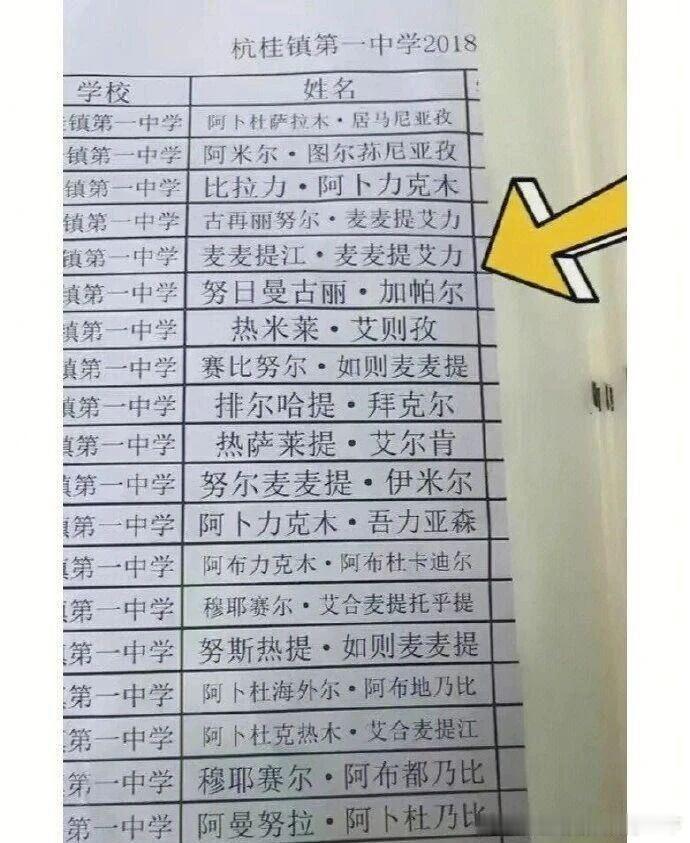 杭桂镇第一中学2018
学校 姓名
镇第一中学 阿卜杜萨拉木·居马尼亚孜
镇第一中学 阿米尔·图尔荪尼亚孜
镇第一中学 比拉力·阿卜力克木
镇第一中学 古再丽努尔·麦麦提艾力
镇第一中学 麦麦提江·麦麦提艾力
镇第一中学 努日曼古丽·加帕尔
镇第一中学 热米莱·艾则孜
镇第一中学 赛比努尔·如则麦麦提
镇第一中学 排尔哈提·拜克尔
镇第一中学 热萨莱提·艾尔肯
镇第一中学 努尔麦麦提·伊米尔
镇第一中学 阿卜力克木·吾力亚森
镇第一中学 阿布力克木·阿布杜卡迪尔
镇第一中学 穆耶赛尔·艾合麦提托乎提
镇第一中学 努斯热提·如则麦麦提
镇第一中学 阿卜杜海外尔·阿布地乃比
镇第一中学 阿卜杜克热木·艾合麦提江
镇第一中学 穆耶赛尔·阿布都乃比
镇第一中学 阿曼努拉·阿卜杜乃比